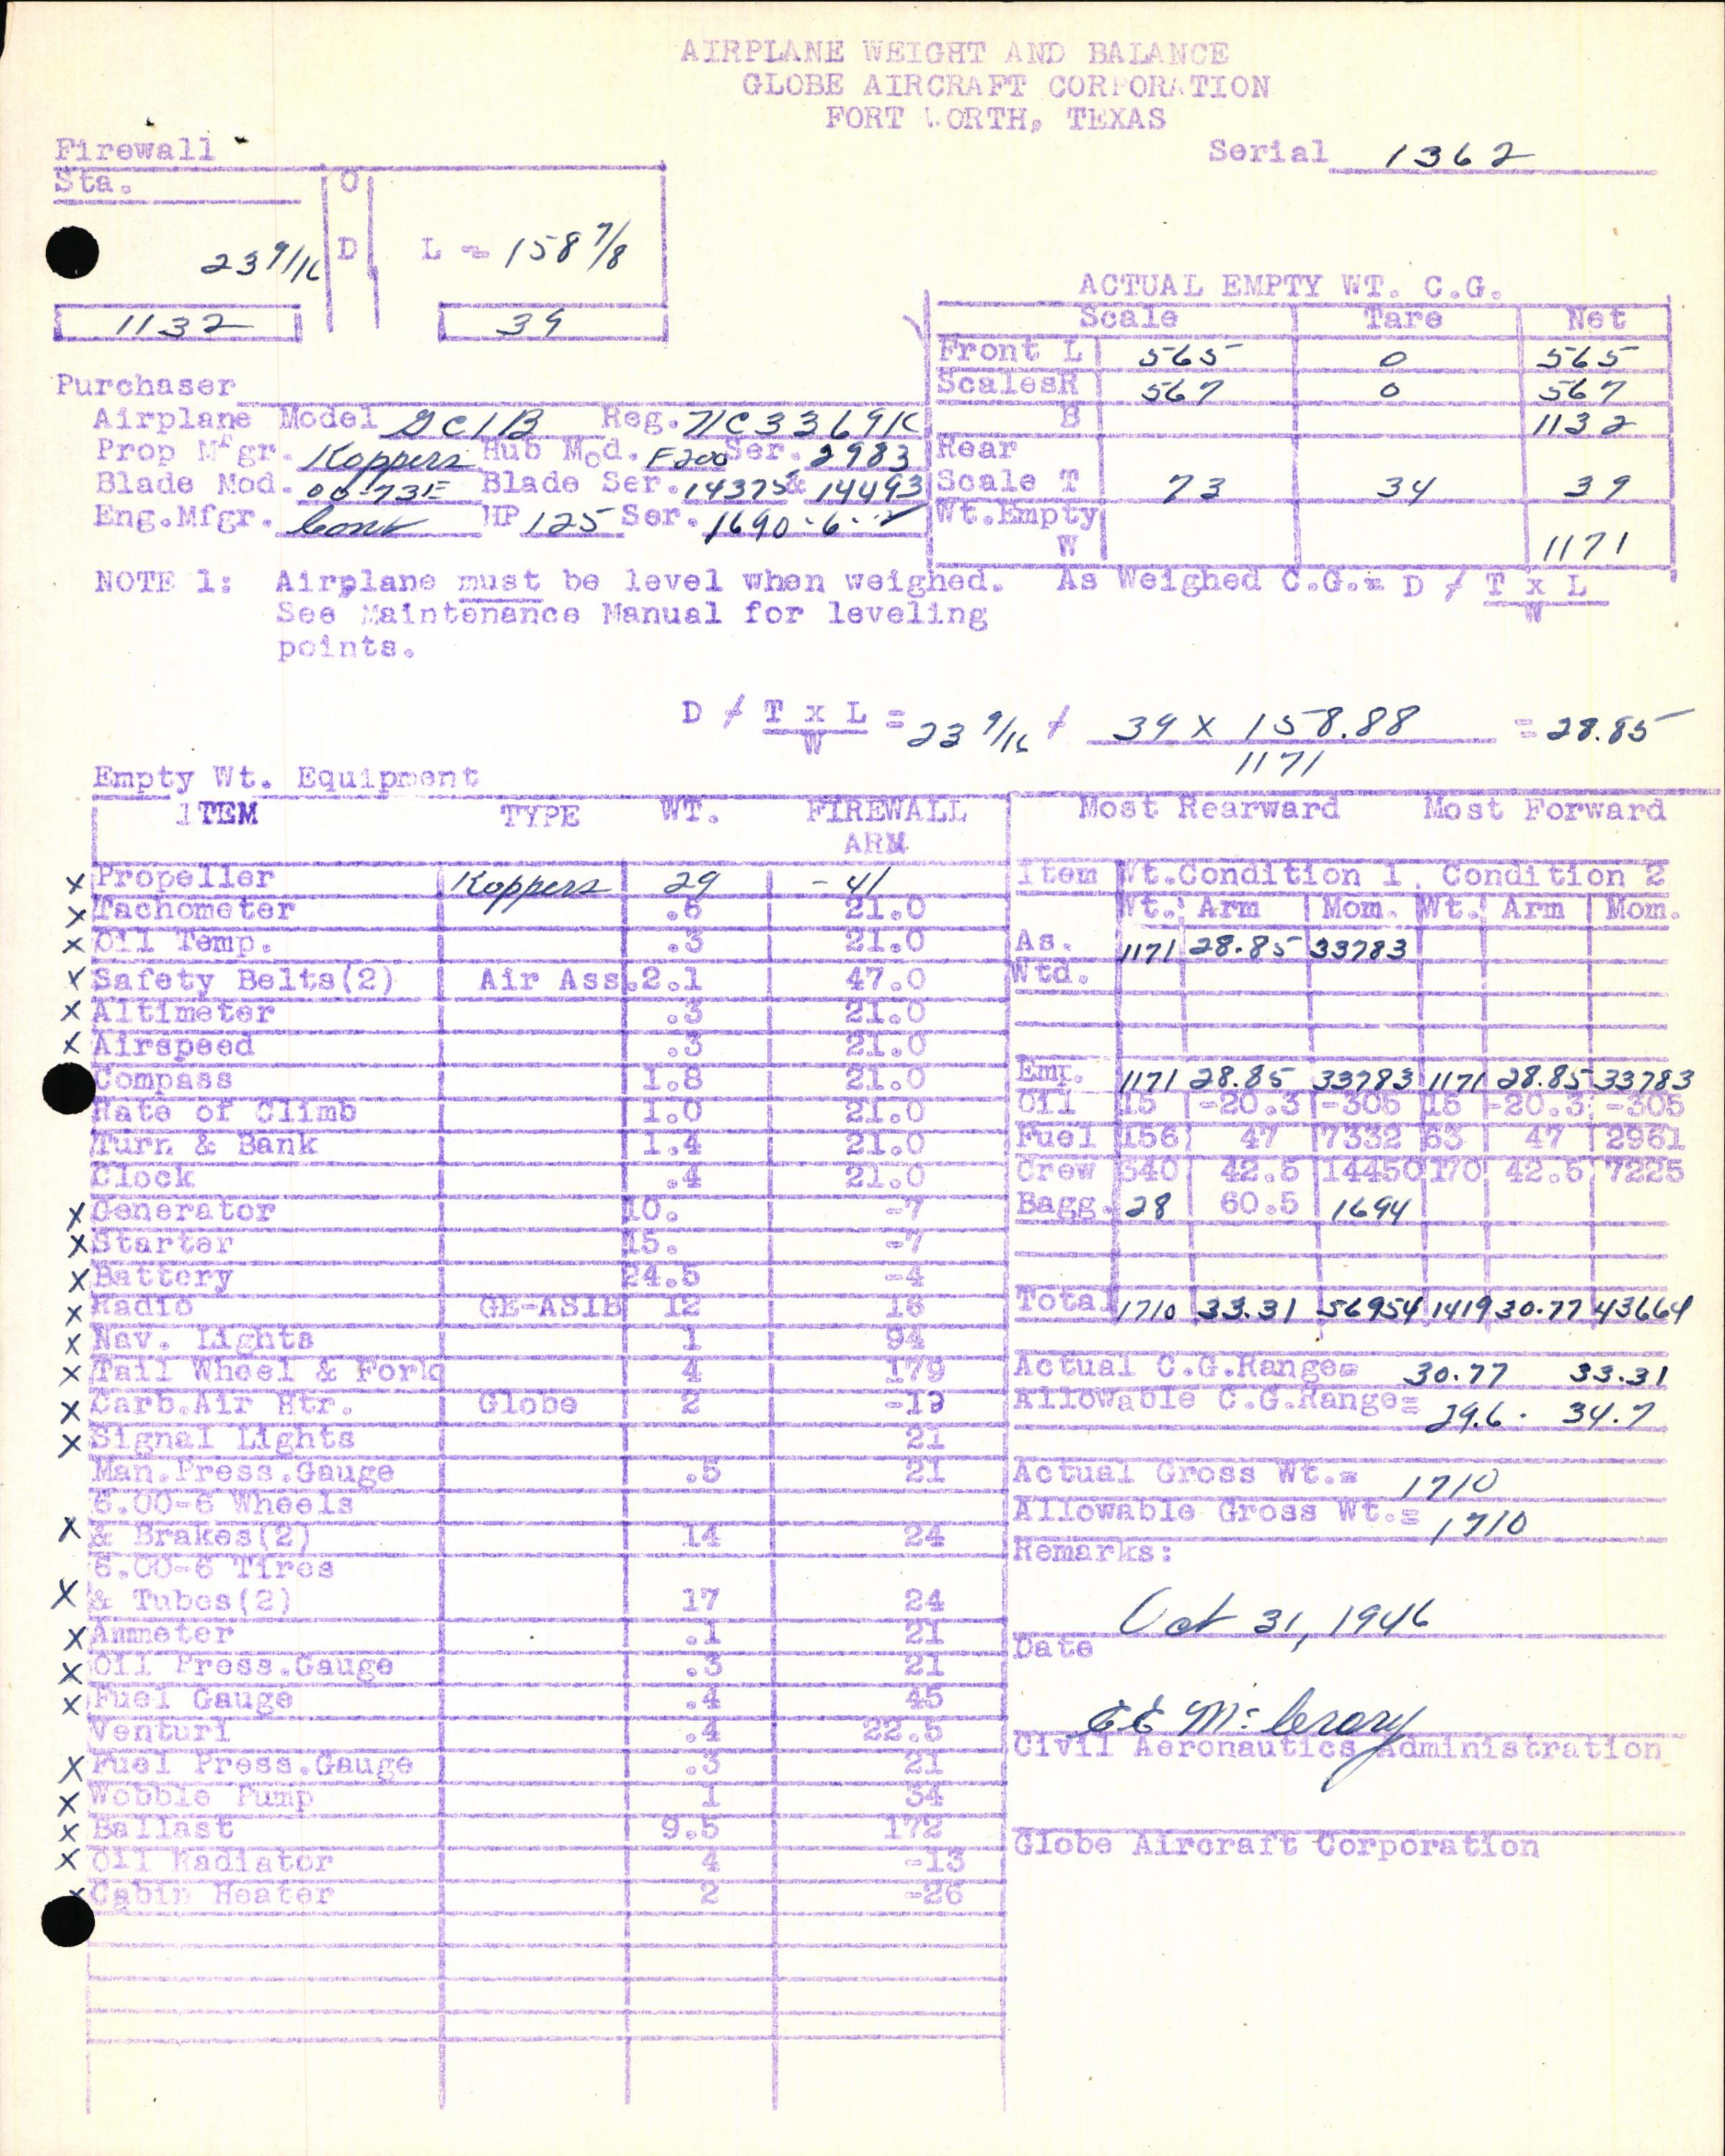 AIRPLANE WEIGHT AND BALANCE
GLOBE AIRCRAFT CORPORATION
FORT WORTH, TEXAS
Serial 1362
Firewall
Sta.
O
23 9/16 D L = 158 7/8
1132 39
ACTUAL EMPTY WT. C.G.
Scale Tare Net
Front L 565 0 565
Scales R 567 0 567
B 1132
Rear
Scale T 73 34 39
Wt.Empty
W 1171
Purchaser
Airplane Model GC1B Reg. NC3369K
Prop Mfgr. Koppers Hub Mod. F200 Ser. 2983
Blade Mod. 00-73E Blade Ser. 14375 & 14493
Eng.Mfgr. Cont HP 125 Ser.
NOTE 1: Airplane must be level when weighed. As Weighed C.G.= D / T x L
W
See Maintenance Manual for leveling
points.
D / T x L = 23 9/16 / 39 x 158.88 = 28.85
W 1171
Empty Wt. Equipment
ITEM TYPE WT. FIREWALL
ARM
x Propeller Koppers 29 -41
x Tachometer .6 21.0
x Oil Temp. .3 21.0
x Safety Belts(2) Air Ass. 2.1 47.0
x Altimeter .3 21.0
x Airspeed .3 21.0
Compass 1.8 21.0
Rate of Climb 1.0 21.0
Turn & Bank 1.4 21.0
Clock .4 21.0
x Generator 10. -7
x Starter 15. -7
x Battery 24.5 -4
x Radio GE-AS1B 12 18
x Nav. Lights 1 94
x Tail Wheel & Fork 4 179
x Carb.Air Htr. Globe 2 -19
x Signal Lights 21
Man.Press.Gauge .5 21
6.00-6 Wheels
x & Brakes(2) 14 24
6.00-6 Tires
x & Tubes(2) 17 24
x Ammeter .1 21
x Oil Press.Gauge .3 21
x Fuel Gauge .4 45
Venturi .4 22.5
x Fuel Press.Gauge .3 21
x Wobble Pump 1 34
x Ballast 9.5 172
x Oil Radiator 4 -13
x Cabin Heater 2 -26
Most Rearward Most Forward
Item Wt.Condition 1. Condition 2
Wt. Arm Mom. Wt. Arm Mom.
As. 1171 28.85 33783
Wtd.
Emp. 1171 28.85 33783 1171 28.85 33783
Oil 15 -20.3 -305 15 -20.3 -305
Fuel 156 47 7332 63 47 2961
Crew 340 42.5 14450 170 42.5 7225
Bagg. 28 60.5 1694
Total 1710 33.31 56954 1419 30.77 43664
Actual C.G.Range= 30.77 33.31
Allowable C.G.Range= 29.6 - 34.7
Actual Gross Wt.= 1710
Allowable Gross Wt.= 1710
Remarks:
Oct 31, 1946
Date
Civil Aeronautics Administration
Globe Aircraft Corporation